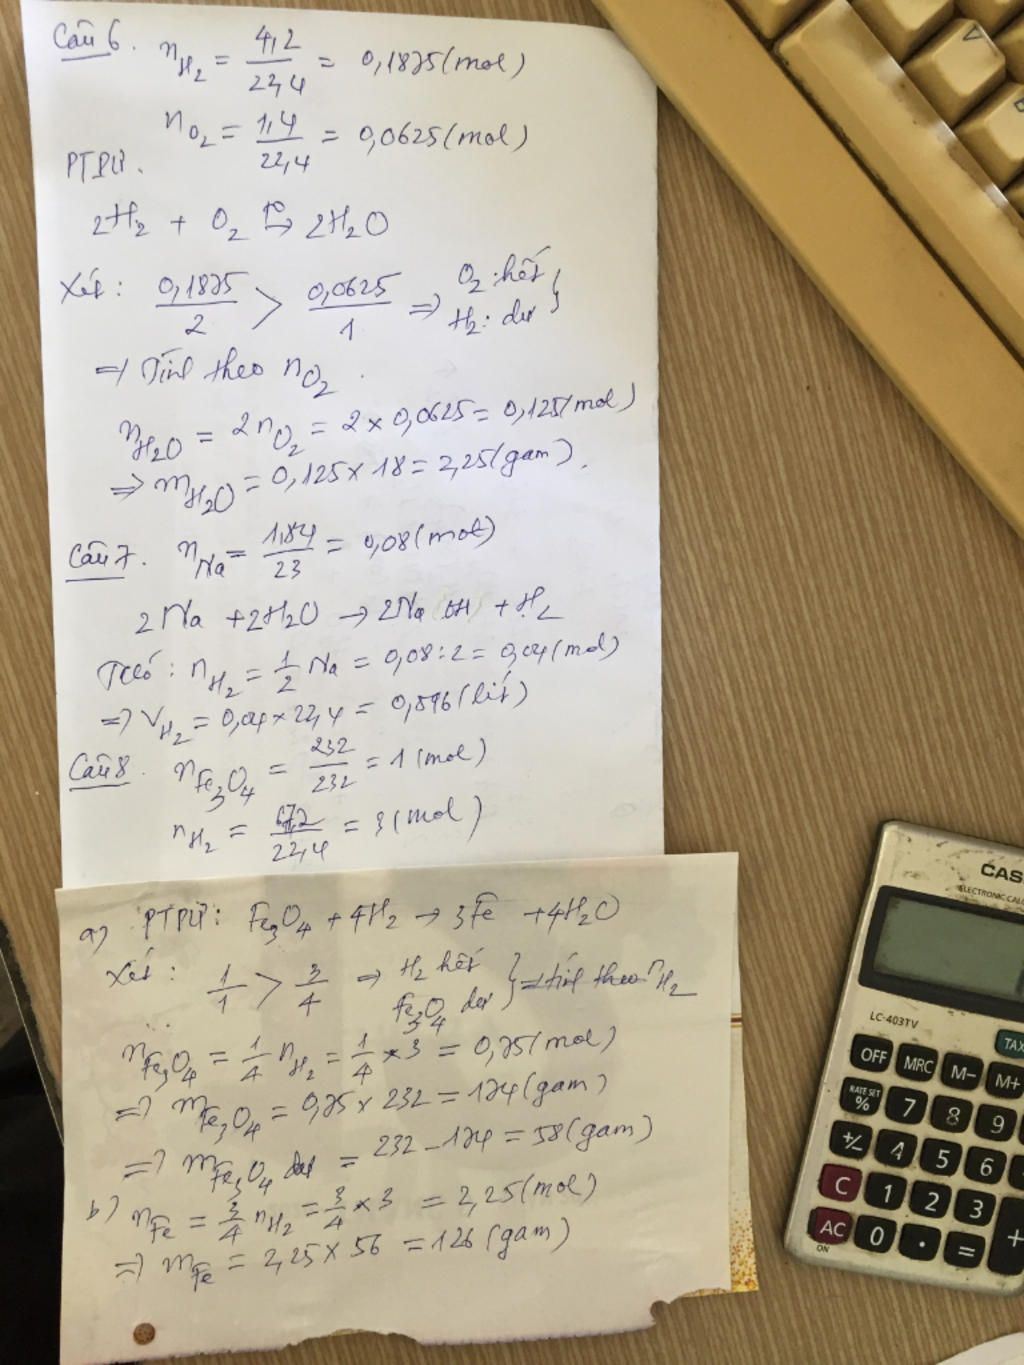 Câu 6. nH2 = 4,2/22,4 = 0,1875 (mol)
nO2 = 1,4/22,4 = 0,0625 (mol)
PTPƯ.
2H2 + O2 t°→ 2H2O
Xét: 0,1875/2 > 0,0625/1 ⇒ O2: hết } H2: dư
⇒ Tính theo nO2.
nH2O = 2nO2 = 2 × 0,0625 = 0,125 (mol)
⇒ mH2O = 0,125 × 18 = 2,25 (gam).
Câu 7. nNa = 1,84/23 = 0,08 (mol)
2Na + 2H2O → 2NaOH + H2
Ta có: nH2 = 1/2 Na = 0,08 : 2 = 0,04 (mol)
⇒ VH2 = 0,04 × 22,4 = 0,896 (lít)
Câu 8. nFe3O4 = 232/232 = 1 (mol)
nH2 = 67,2/22,4 = 3 (mol)
a) PTPƯ: Fe3O4 + 4H2 → 3Fe + 4H2O
Xét: 1/1 > 3/4 ⇒ H2 hết Fe3O4 dư } ⇒ tính theo nH2
nFe3O4 = 1/4 nH2 = 1/4 × 3 = 0,75 (mol)
⇒ mFe3O4 = 0,75 × 232 = 174 (gam)
⇒ mFe3O4 dư = 232 - 174 = 58 (gam)
b) nFe = 3/4 nH2 = 3/4 × 3 = 2,25 (mol)
⇒ mFe = 2,25 × 56 = 126 (gam)
CAS
ELECTRONIC CAL
LC-403TV
TAX
OFF MRC M− M+
RATE SET
% 7 8 9
+/− 4 5 6
C 1 2 3 +
AC 0 . =
ON